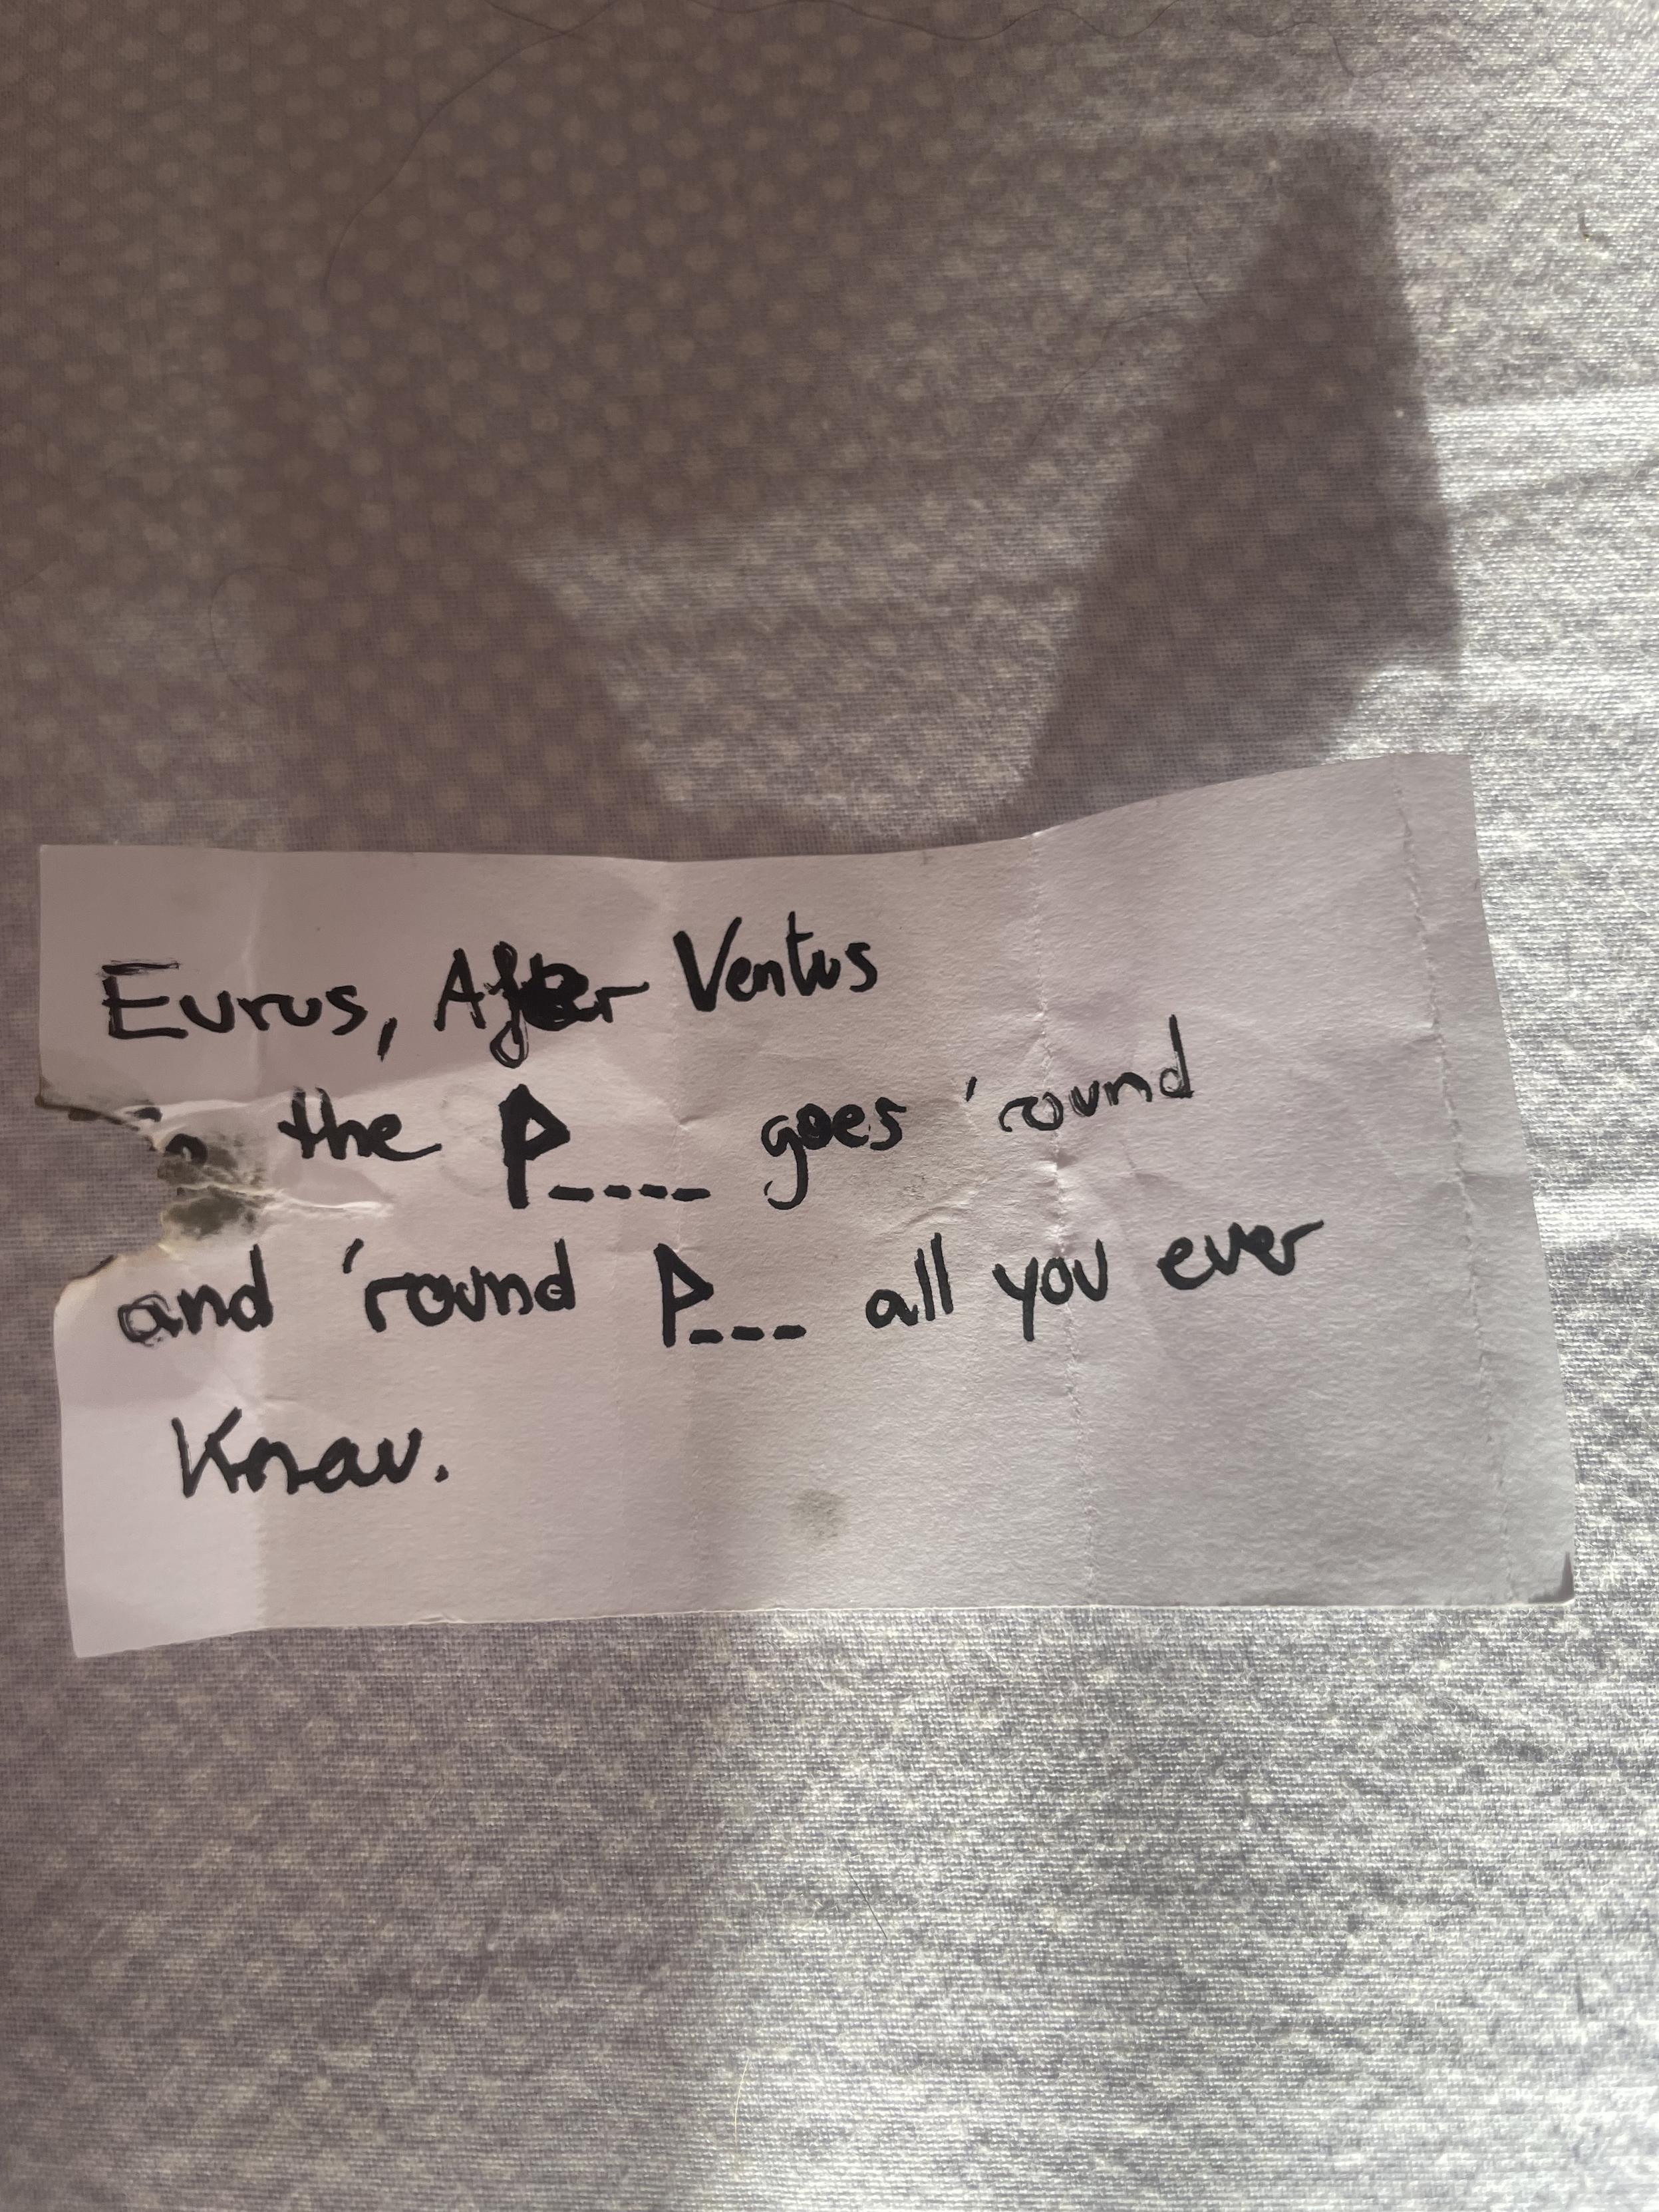 Eurus, After Ventus
the P---- goes 'round
and 'round P--- all you ever
Know.